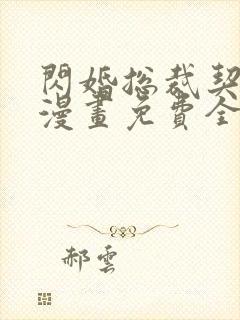 閃婚總裁契
漫畫免費全
郝雲